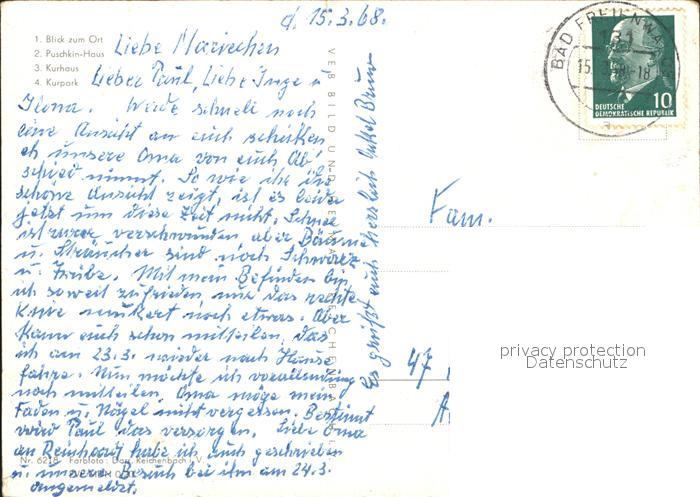 d. 15.3.68.
1. Blick zum Ort
2. Puschkin-Haus
3. Kurhaus
4. Kurpark
Liebe Mariechen
Lieber Paul, Liebe Inge u
Ilona. Werde schnell noch
eine Ansicht an euch schicken
eh unsere Oma von euch Ab-
schied nimmt. So wie ihr die
schöne Ansicht zeigt, ist es leider
jetzt um diese Zeit nicht. Schnee
ist zwar verschwunden aber Bäume
u. Sträucher sind noch Schwarz
u. Trübe. Mit mein Befinden bin
ich soweit zufrieden, nur das rechte
Knie muckert noch etwas. Aber
kann euch schon mitteilen, das
ich am 23.3. wieder nach Hause
fahre. Nun möchte ich
noch mitteilen, Oma möge mein
Faden u. Nägel nicht vergessen. Bestimmt
wird Paul das versorgen. Liebe Oma
an Reinhardt habe ich auch geschrieben
u. unseren Besuch bei ihm am 24.3.
angemeldet.
Es grüßt euch herzlich Onkel Bruno
VEB BILD UND HEIMAT REICHENBACH
Nr. 6218 Farbfoto: Darr, Reichenbach i. V.
BAD FREIENWA
131
15. -18
DEUTSCHE
DEMOKRATISCHE REPUBLIK
10
Fam.
47
privacy protection
Datenschutz